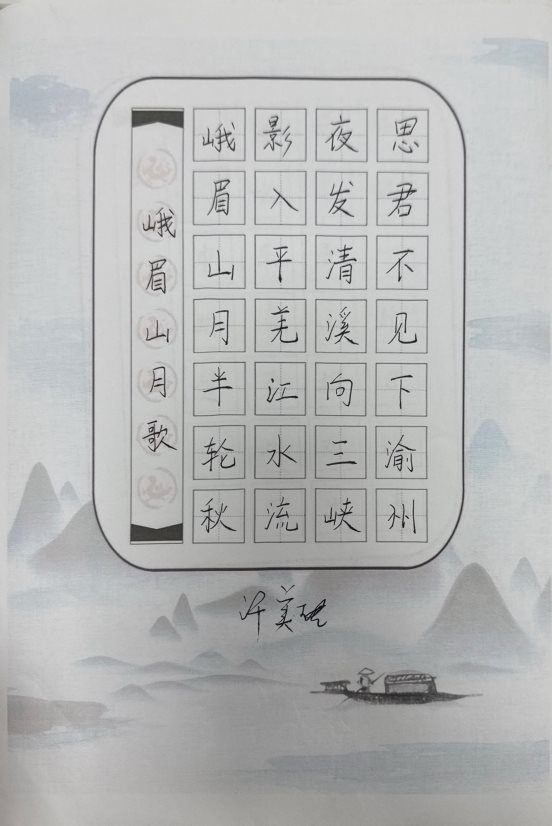 峨眉山月歌
峨眉山月半轮秋
影入平羌江水流
夜发清溪向三峡
思君不见下渝州